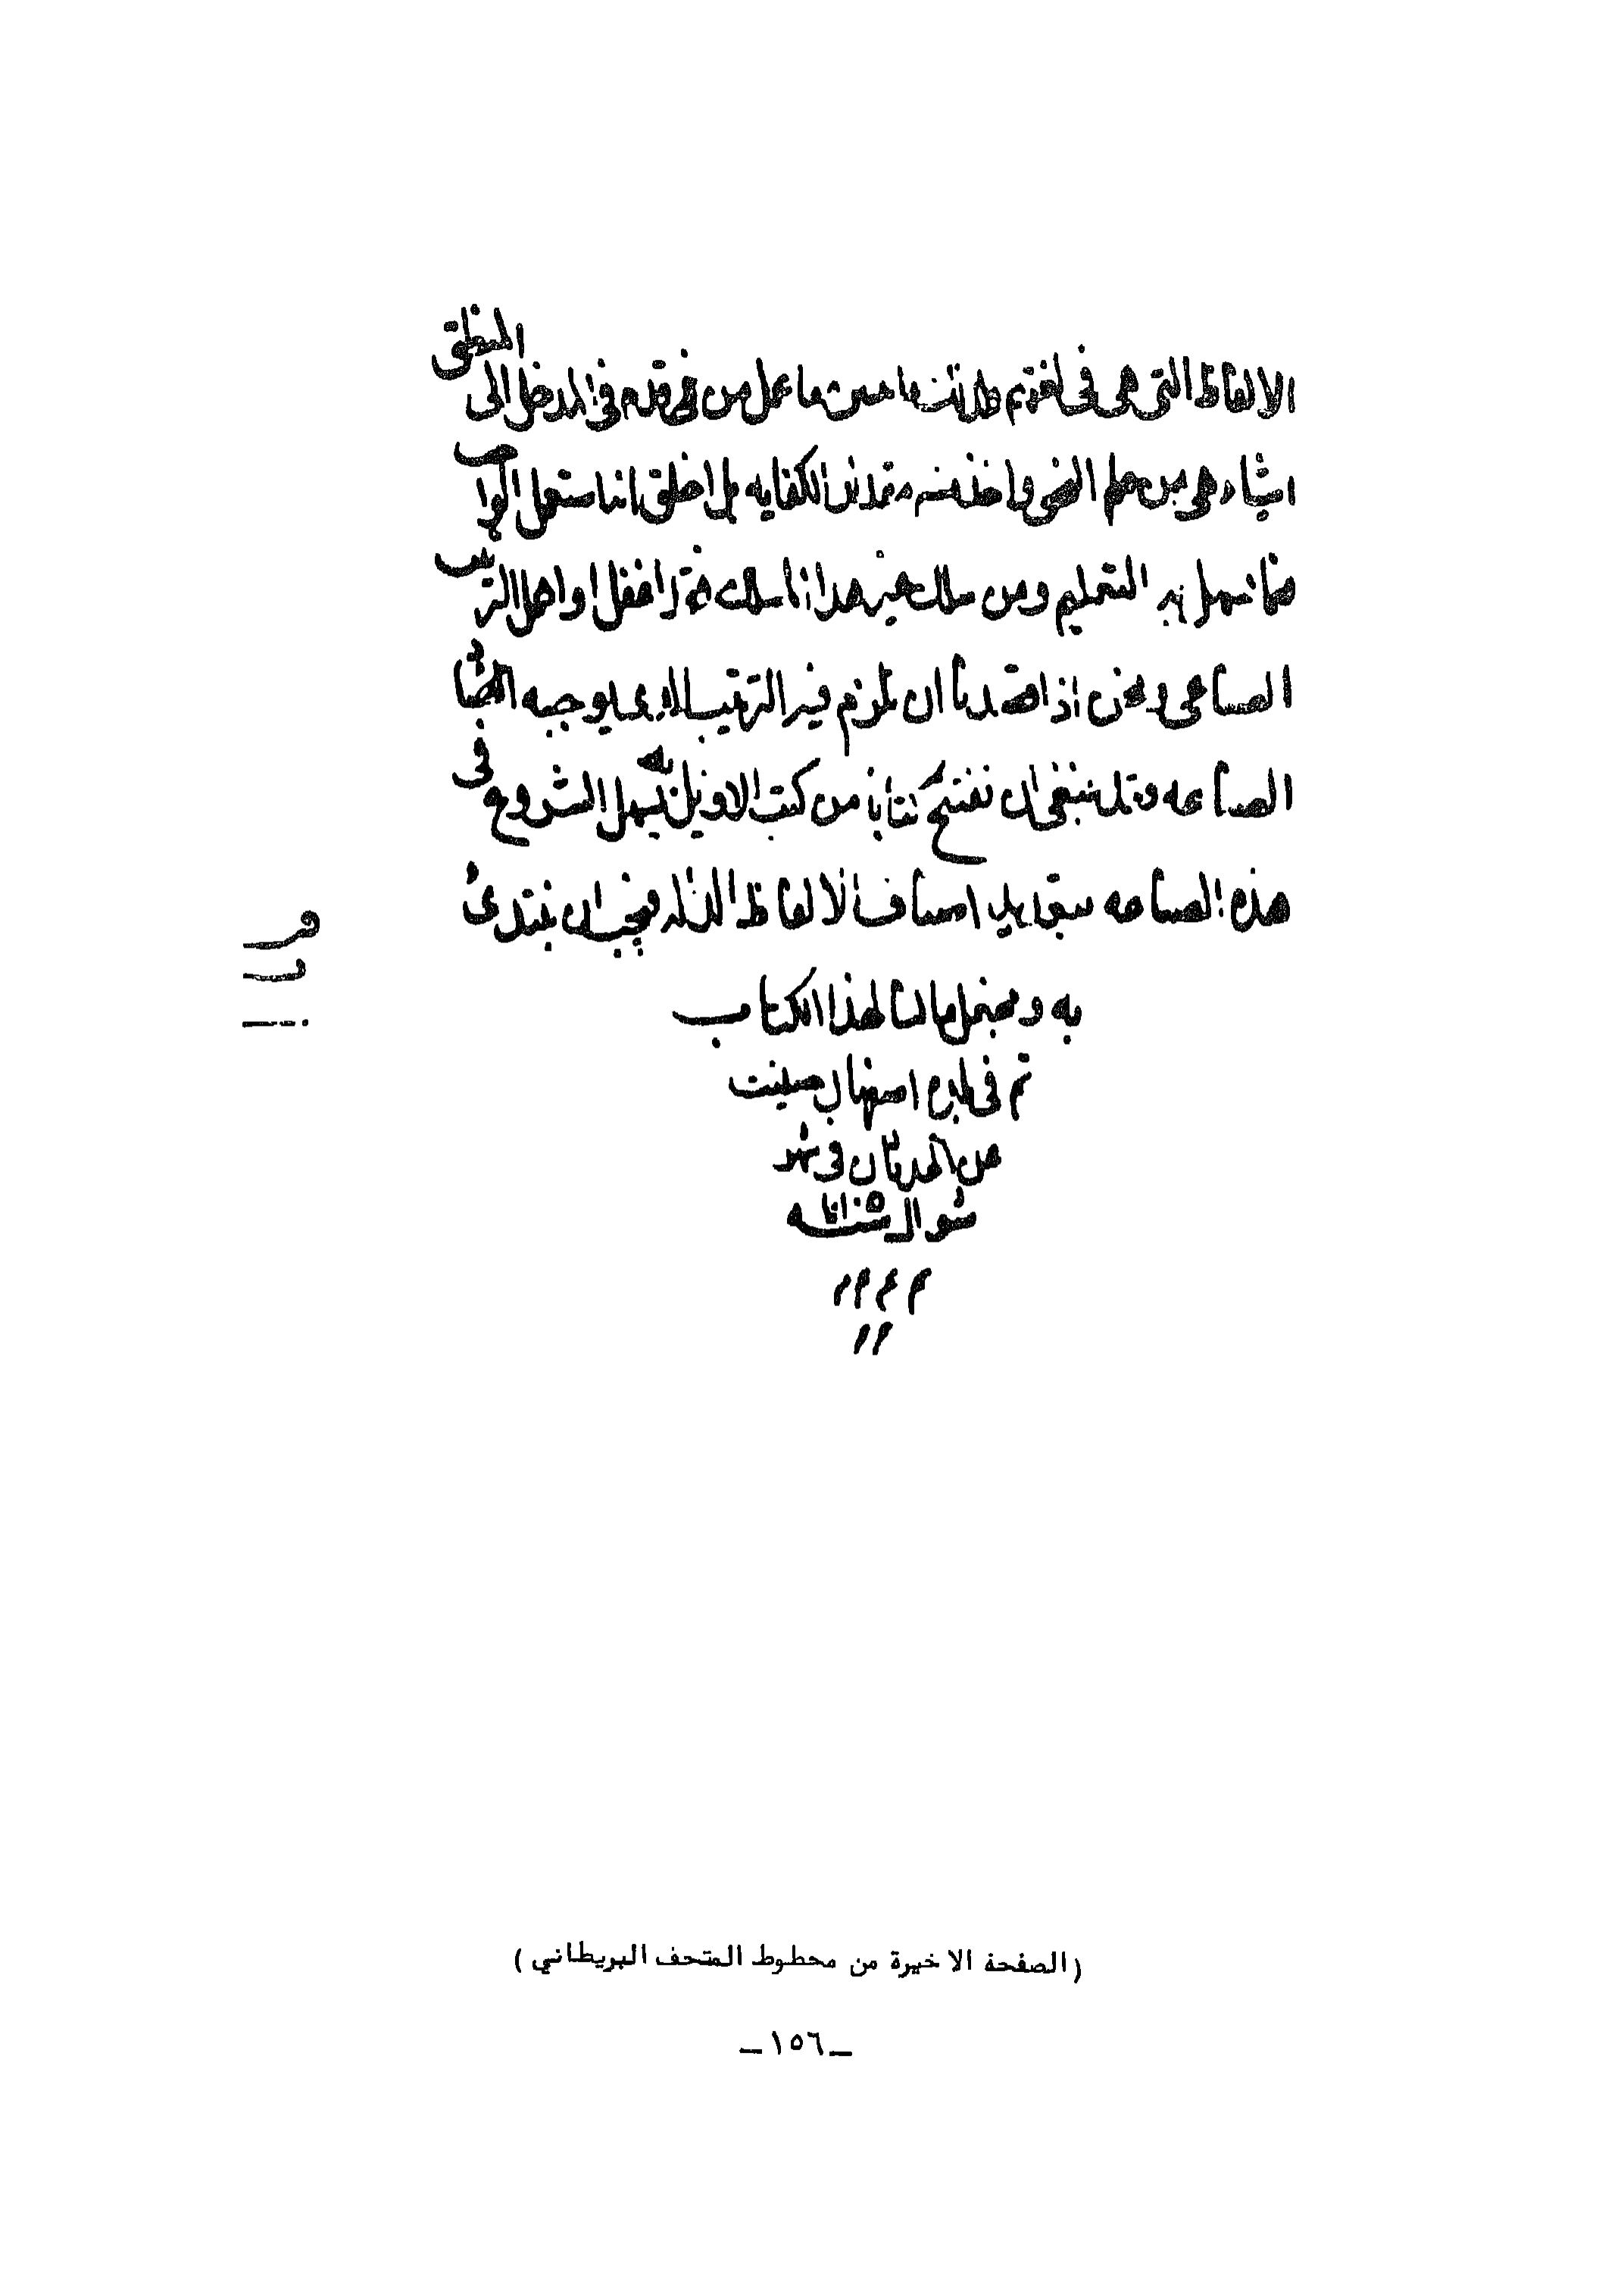 الالفاظ التى هى فى لغتهم فلذلك ما حسن ما عمل من قدم فى المدخل الى المنطق
اشياء هى من علم النحو واخذ منه مقدار الكفايه بل الحق انه استعمل الواجب
فيما يسهل به التعليم ومن سلك غير هذا المسلك فقد اغفل او اهمل الترتيب
الصناعى ونحن اذا قصدنا ان نلزم فيه الترتيب الذى يوجبه
الصناعه فقد ينبغى ان نفتتح كتابا من كتب الاوايل به يسهل الشروع فى
هذه الصناعه بتعديد اصناف الالفاظ الداله فيجب ان نبتدئ
به ونجعل تاليا لهذا الكتاب
تم فى بلدة اصفهان صينت
عن الحدثان فى شهر
شوال سنة
(الصفحة الاخيرة من مخطوط المتحف البريطاني)
ـ ١٥٦ ـ